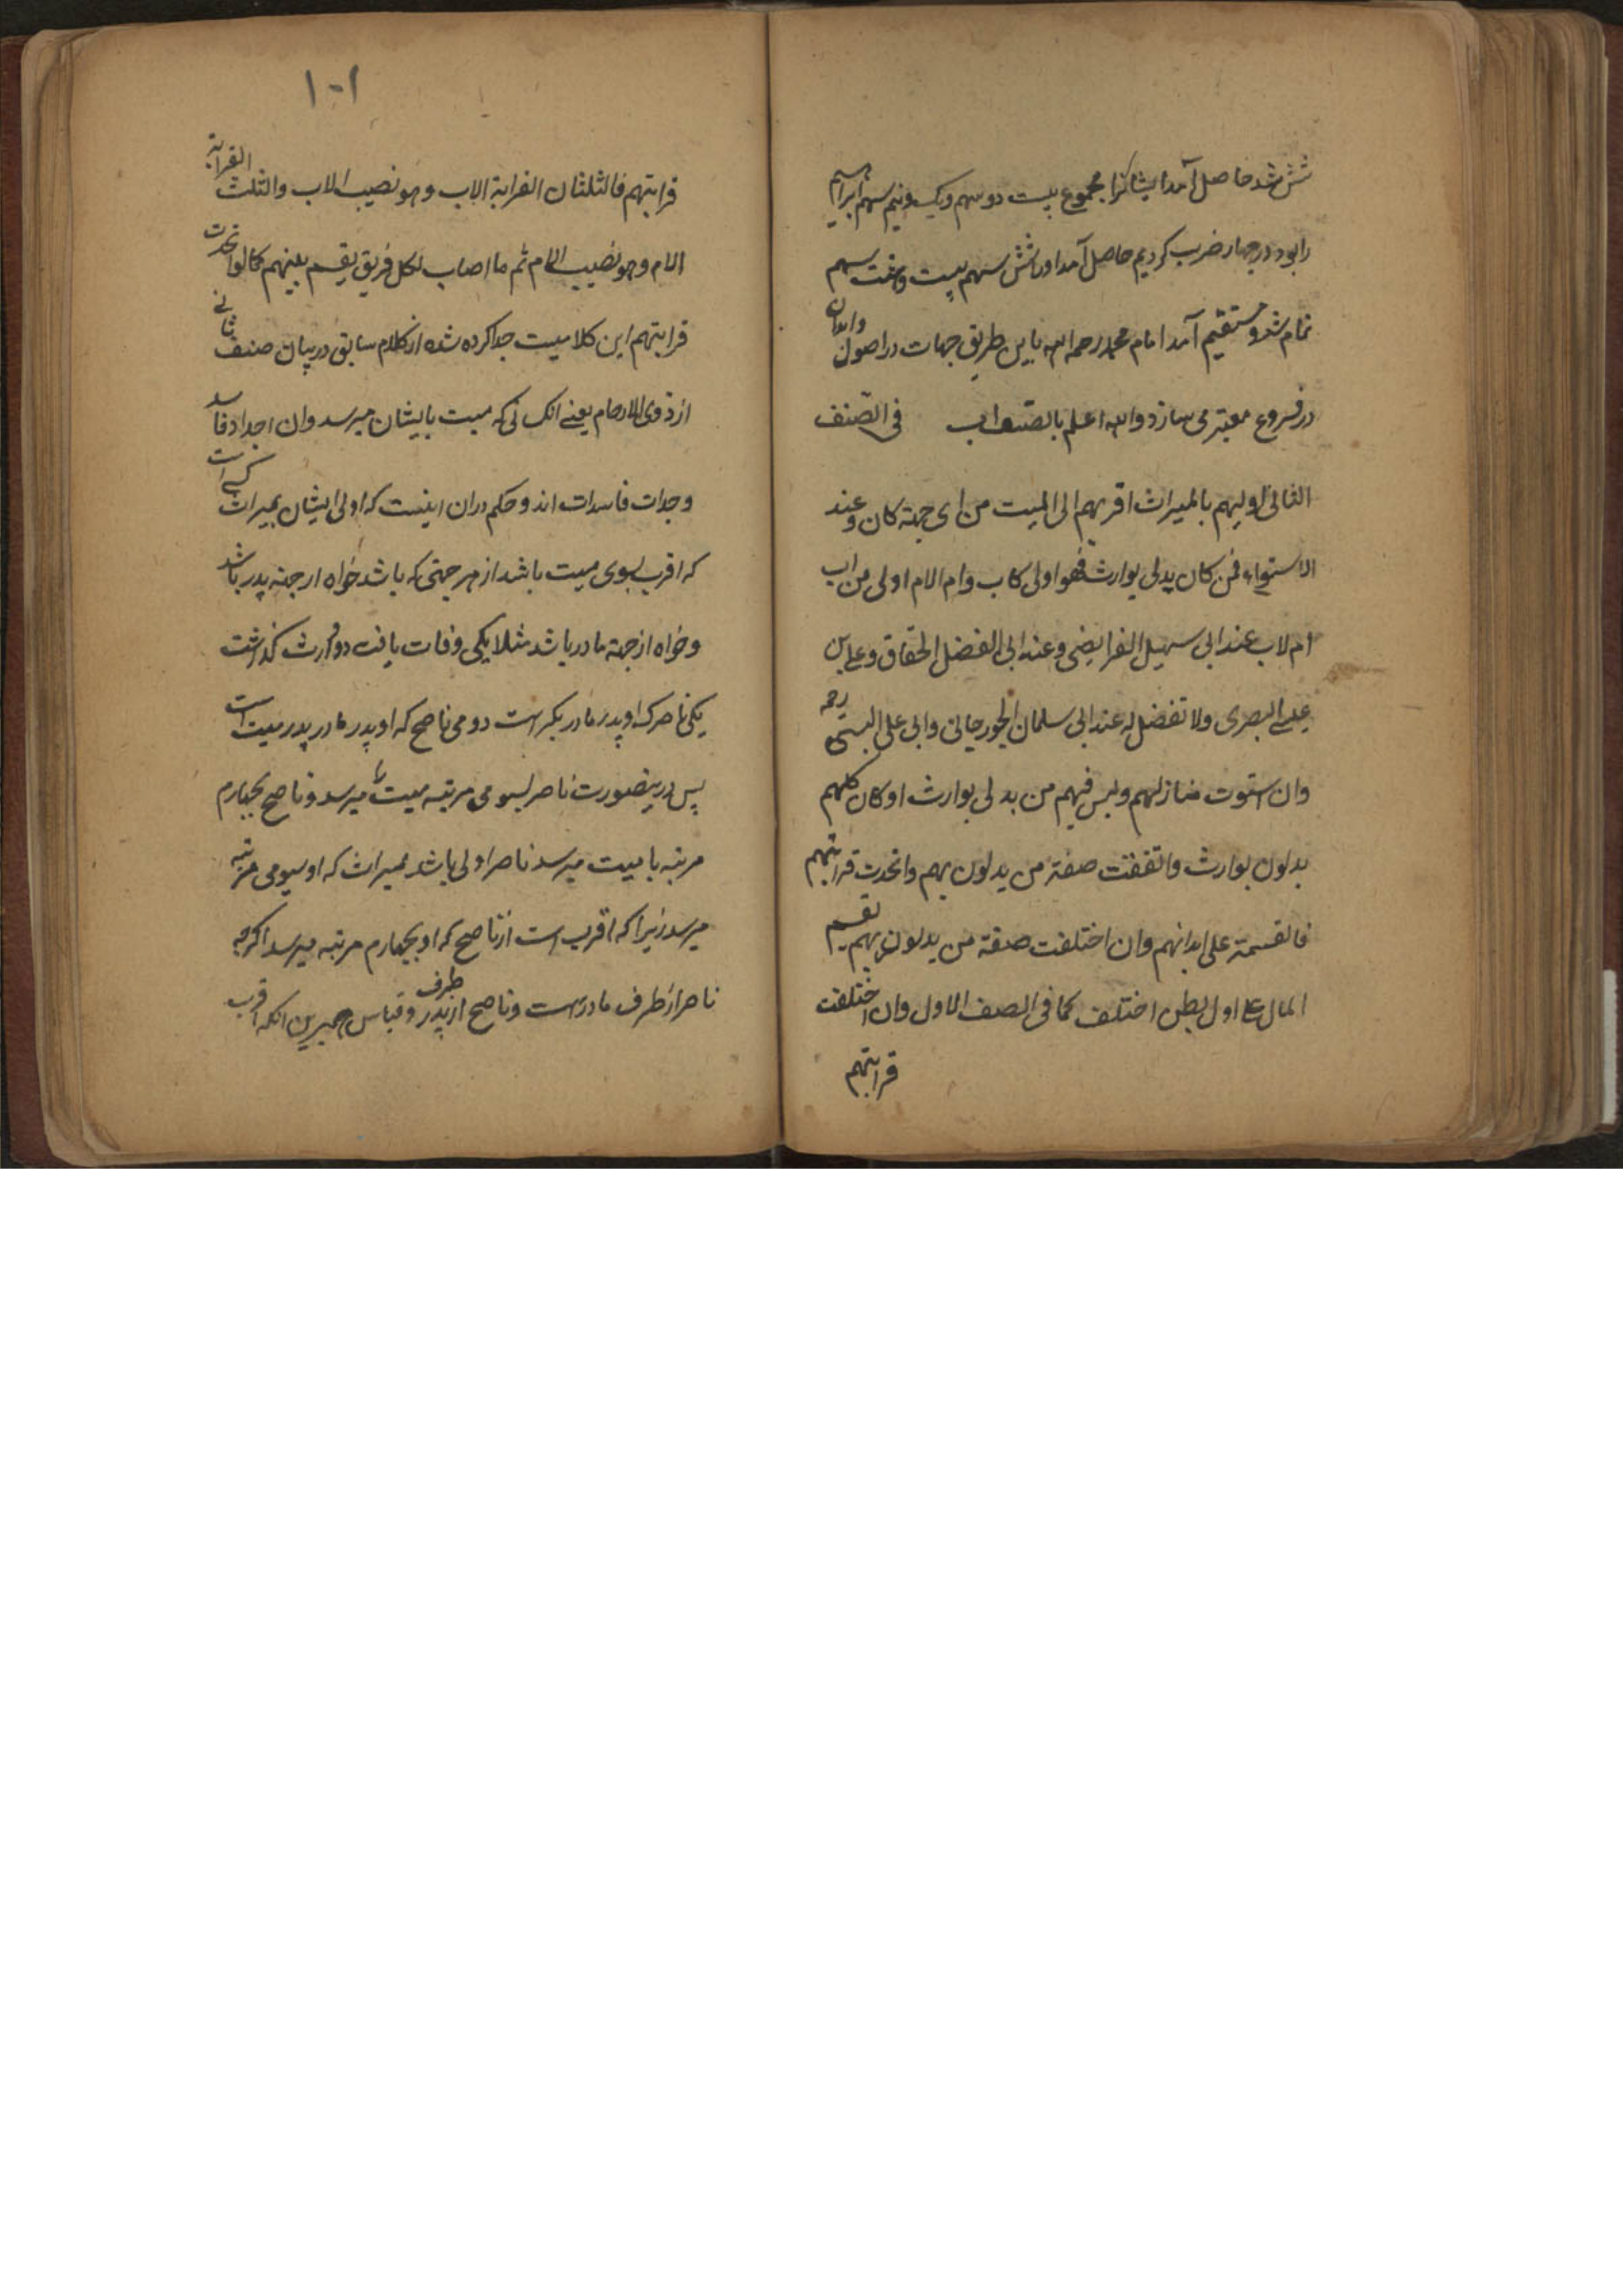 شش شد حاصل آمد ایشانرا مجموع بیست دو سهم ویک ونیم سهم ابراهیم
را بود در چهار ضرب کردیم حاصل آمد اورا شش سهم بیست وهفت سهم
تمام شد ومستقیم آمد امام محمد رحمه الله باین طریق جهات در اصول وابدان
در فروع معتبر می سازد والله اعلم بالصواب فی الصنف
الثانی اولیهم بالمیراث اقربهم الی المیت من ای جهة کان وعند
الاستواء فمن کان یدلی بوارث فهو اولی کاب وام الام اولی من اب
ام لاب عند ابی سهیل الفرایضی وعند ابی الفضل الخفاق وعلی بن
عیسی البصری ولا تفضل له عند ابی سلمان الجورجانی وابی علی البستی رحمه
وان استوت منازلهم ولیس فیهم من یدلی بوارث او کان کلهم
یدلون بوارث واتفقت صفة من یدلون بهم واتحدت قرابتهم
فالقسمة علی ابدانهم وان اختلفت صفة من یدلون بهم یقسم
المال علی اول بطن اختلف کما فی الصنف الاول وان اختلفت
قرابتهم
۱۰۱
قرابتهم فالثلثان القرابة الاب وهو نصیب الاب والثلث القرابة
الام وهو نصیب الام ثم ما اصاب لکل فریق یقسم بینهم کما لو اتحدت
قرابتهم این کلامیست جدا کرده شده از کلام سابق در بیان صنف ثانی
از ذوی الارحام یعنی انکسانی که میت بایشان میرسد وان اجداد فاسد
وجدات فاسدات اند وحکم دران اینست که اولی ایشان بمیراث کسی است
که اقرب بسوی میت باشد از هر جهتی که باشد خواه از جهة پدر باشد
وخواه از جهة مادر باشد مثلا یکی وفات یافت دو وارث گذاشت
یکی ناصر که او پدر مادر بکر است دومی ناصح که او پدر مادر پدر میت است
پس درینصورت ناصر بسومی مرتبه میت میرسد وناصح بچهارم
مرتبه با میت میرسد ناصر اولی باشد بمیراث که او بسومی مرتبه
میرسد زیرا که اقرب است از ناصح که او بچهارم مرتبه میرسد اگرچه
ناصر از طرف مادر است وناصح از طرف پدر وقیاس همبرین انکه اقرب